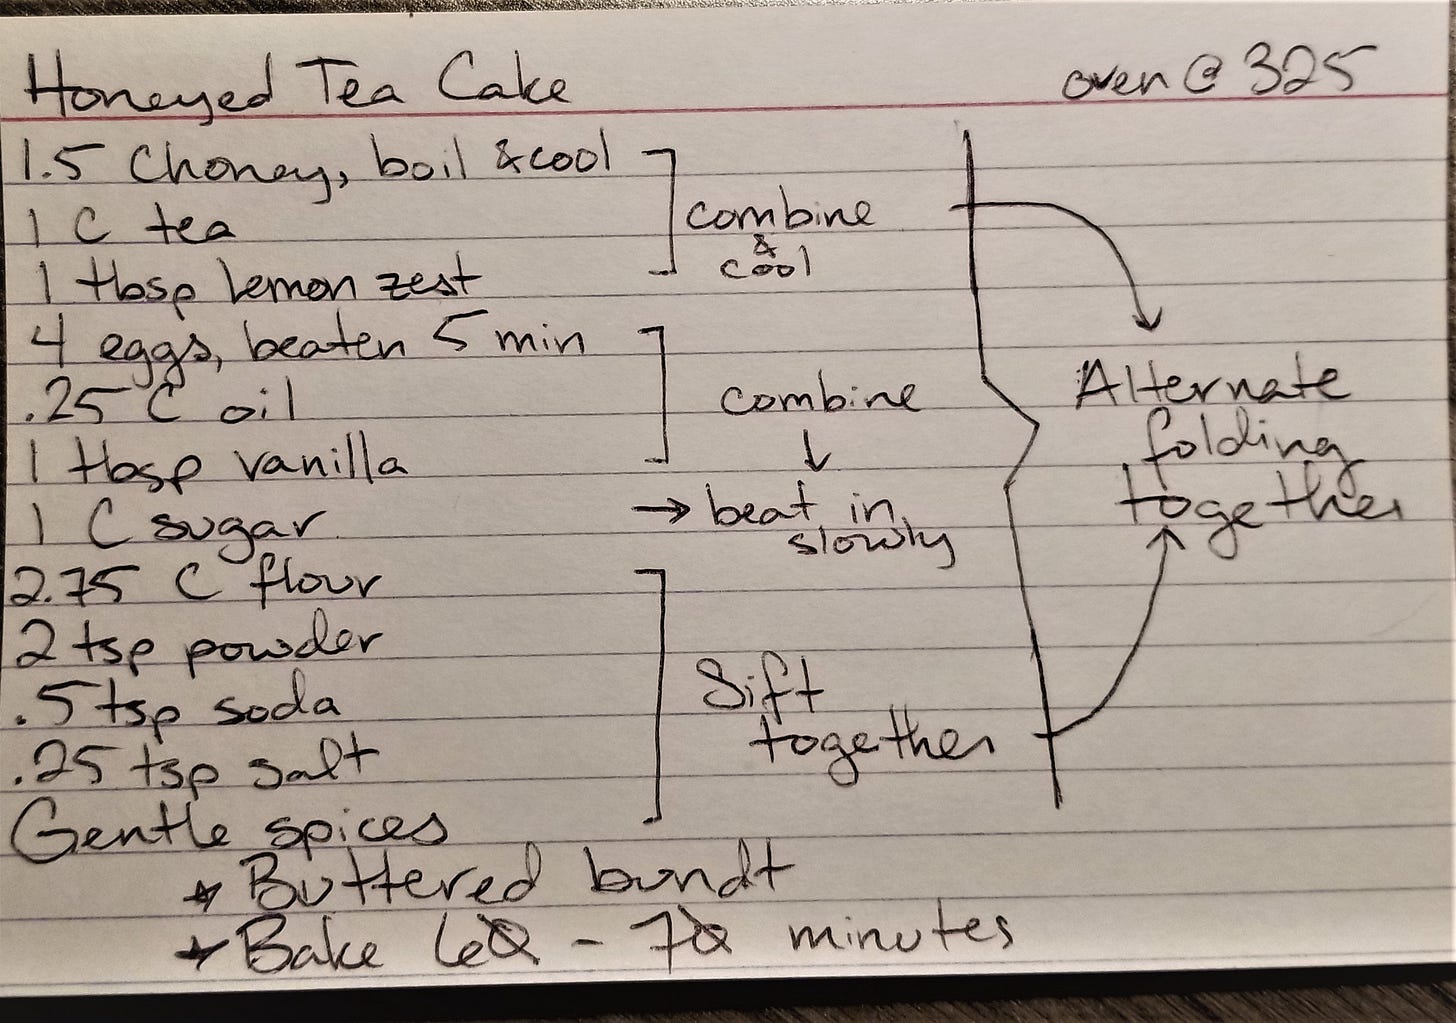 Honeyed Tea Cake
oven @ 325
1.5 C honey, boil & cool
1 C tea
1 tbsp lemon zest
combine
&
cool
4 eggs, beaten 5 min
.25 C oil
1 tbsp vanilla
combine
↓
1 C sugar
→ beat in
slowly
2.75 C flour
2 tsp powder
.5 tsp soda
.25 tsp salt
Gentle spices
Sift
together
Alternate
folding
together
* Buttered bundt
* Bake 60 - 70 minutes